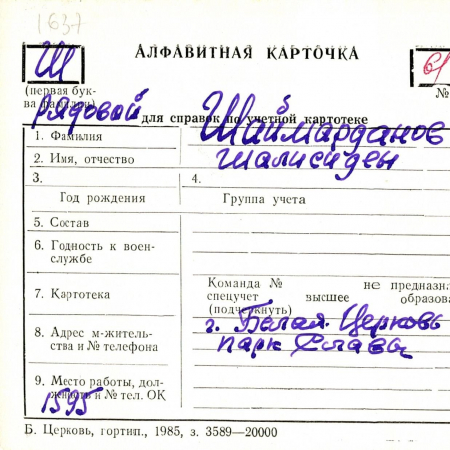 1637
Ш
АЛФАВИТНАЯ КАРТОЧКА
61
(первая бук-
ва фамилии)
№
рядовой
для справок по учетной картотеке
1. Фамилия Шаймарданов
2. Имя, отчество
3.
4.
Год рождения
Группа учета
5. Состав
6. Годность к воен-
службе
7. Картотека
Команда № не предназна
спецучет высшее образова
(подчеркнуть)
8. Адрес м-житель-
ства и № телефона
г. Белая Церковь
парк Славы
9. Место работы, дол-
жность и № тел. ОК
1595
Б. Церковь, гортип., 1985, з. 3589—20000